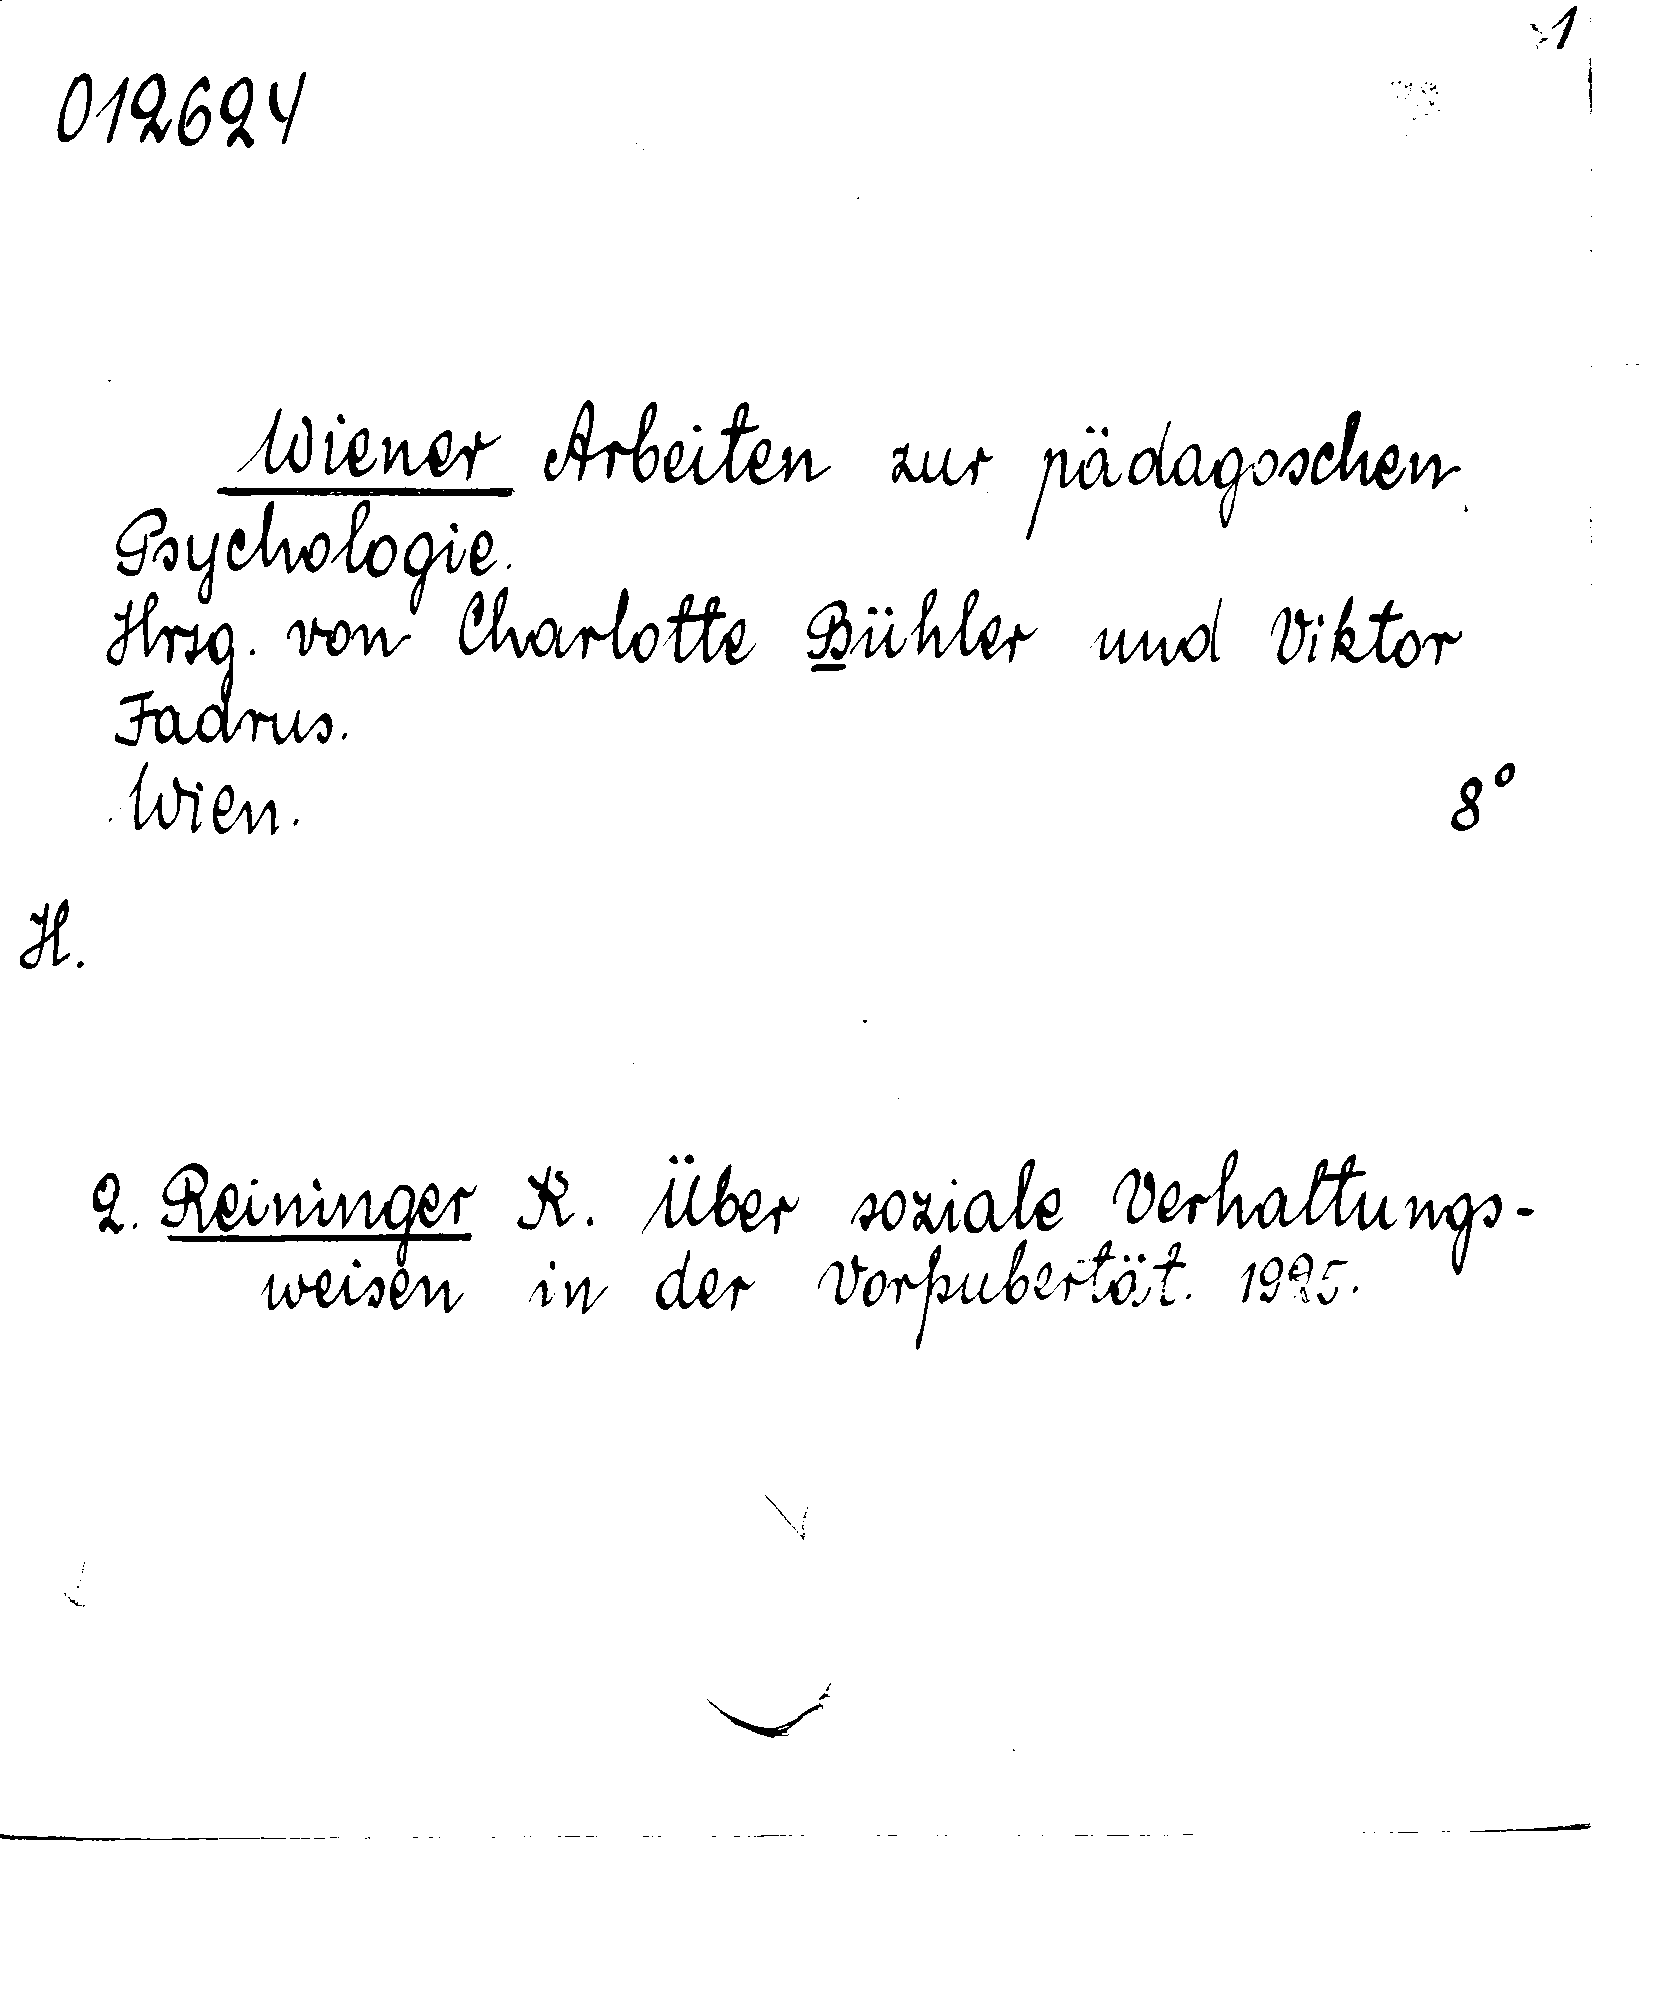 1
012624
Wiener Arbeiten zur pädagoschen
Psychologie.
Hrsg. von Charlotte Bühler und Viktor
Fadrus.
Wien. 8°
H.
2. Reininger K. Über soziale Verhaltungs-
weisen in der Vorpubertät. 1925.